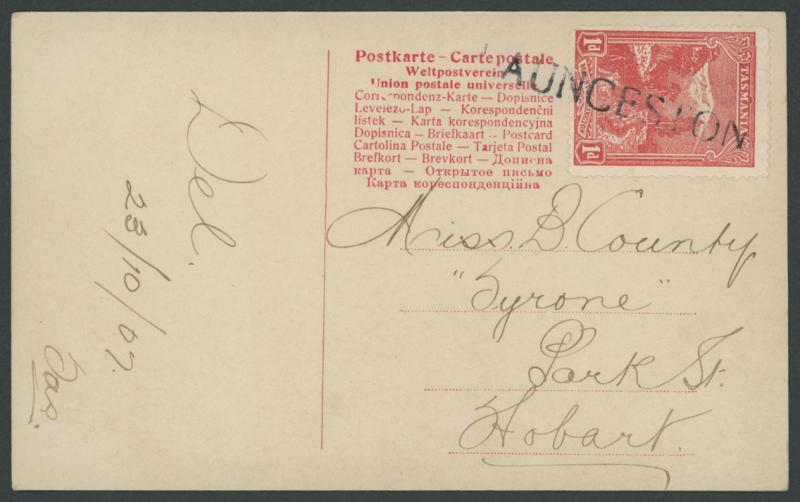 Postkarte – Carte postale
Weltpostverein
Union postale universelle
Correspondenz-Karte — Dopisnice
Levelezo-Lap — Korespondenční
lístek — Karta korespondencyjna
Dopisnica — Briefkaart — Postcard
Cartolina Postale — Tarjeta Postal
Brefkort — Brevkort — Дописна
карта — Открытое письмо
Карта кореспонденційна
1d
TASMANIA
1d
LAUNCESTON
Miss. D. County
"Tyrone"
Park St.
Hobart.
Del.
23/10/07.
Tas.